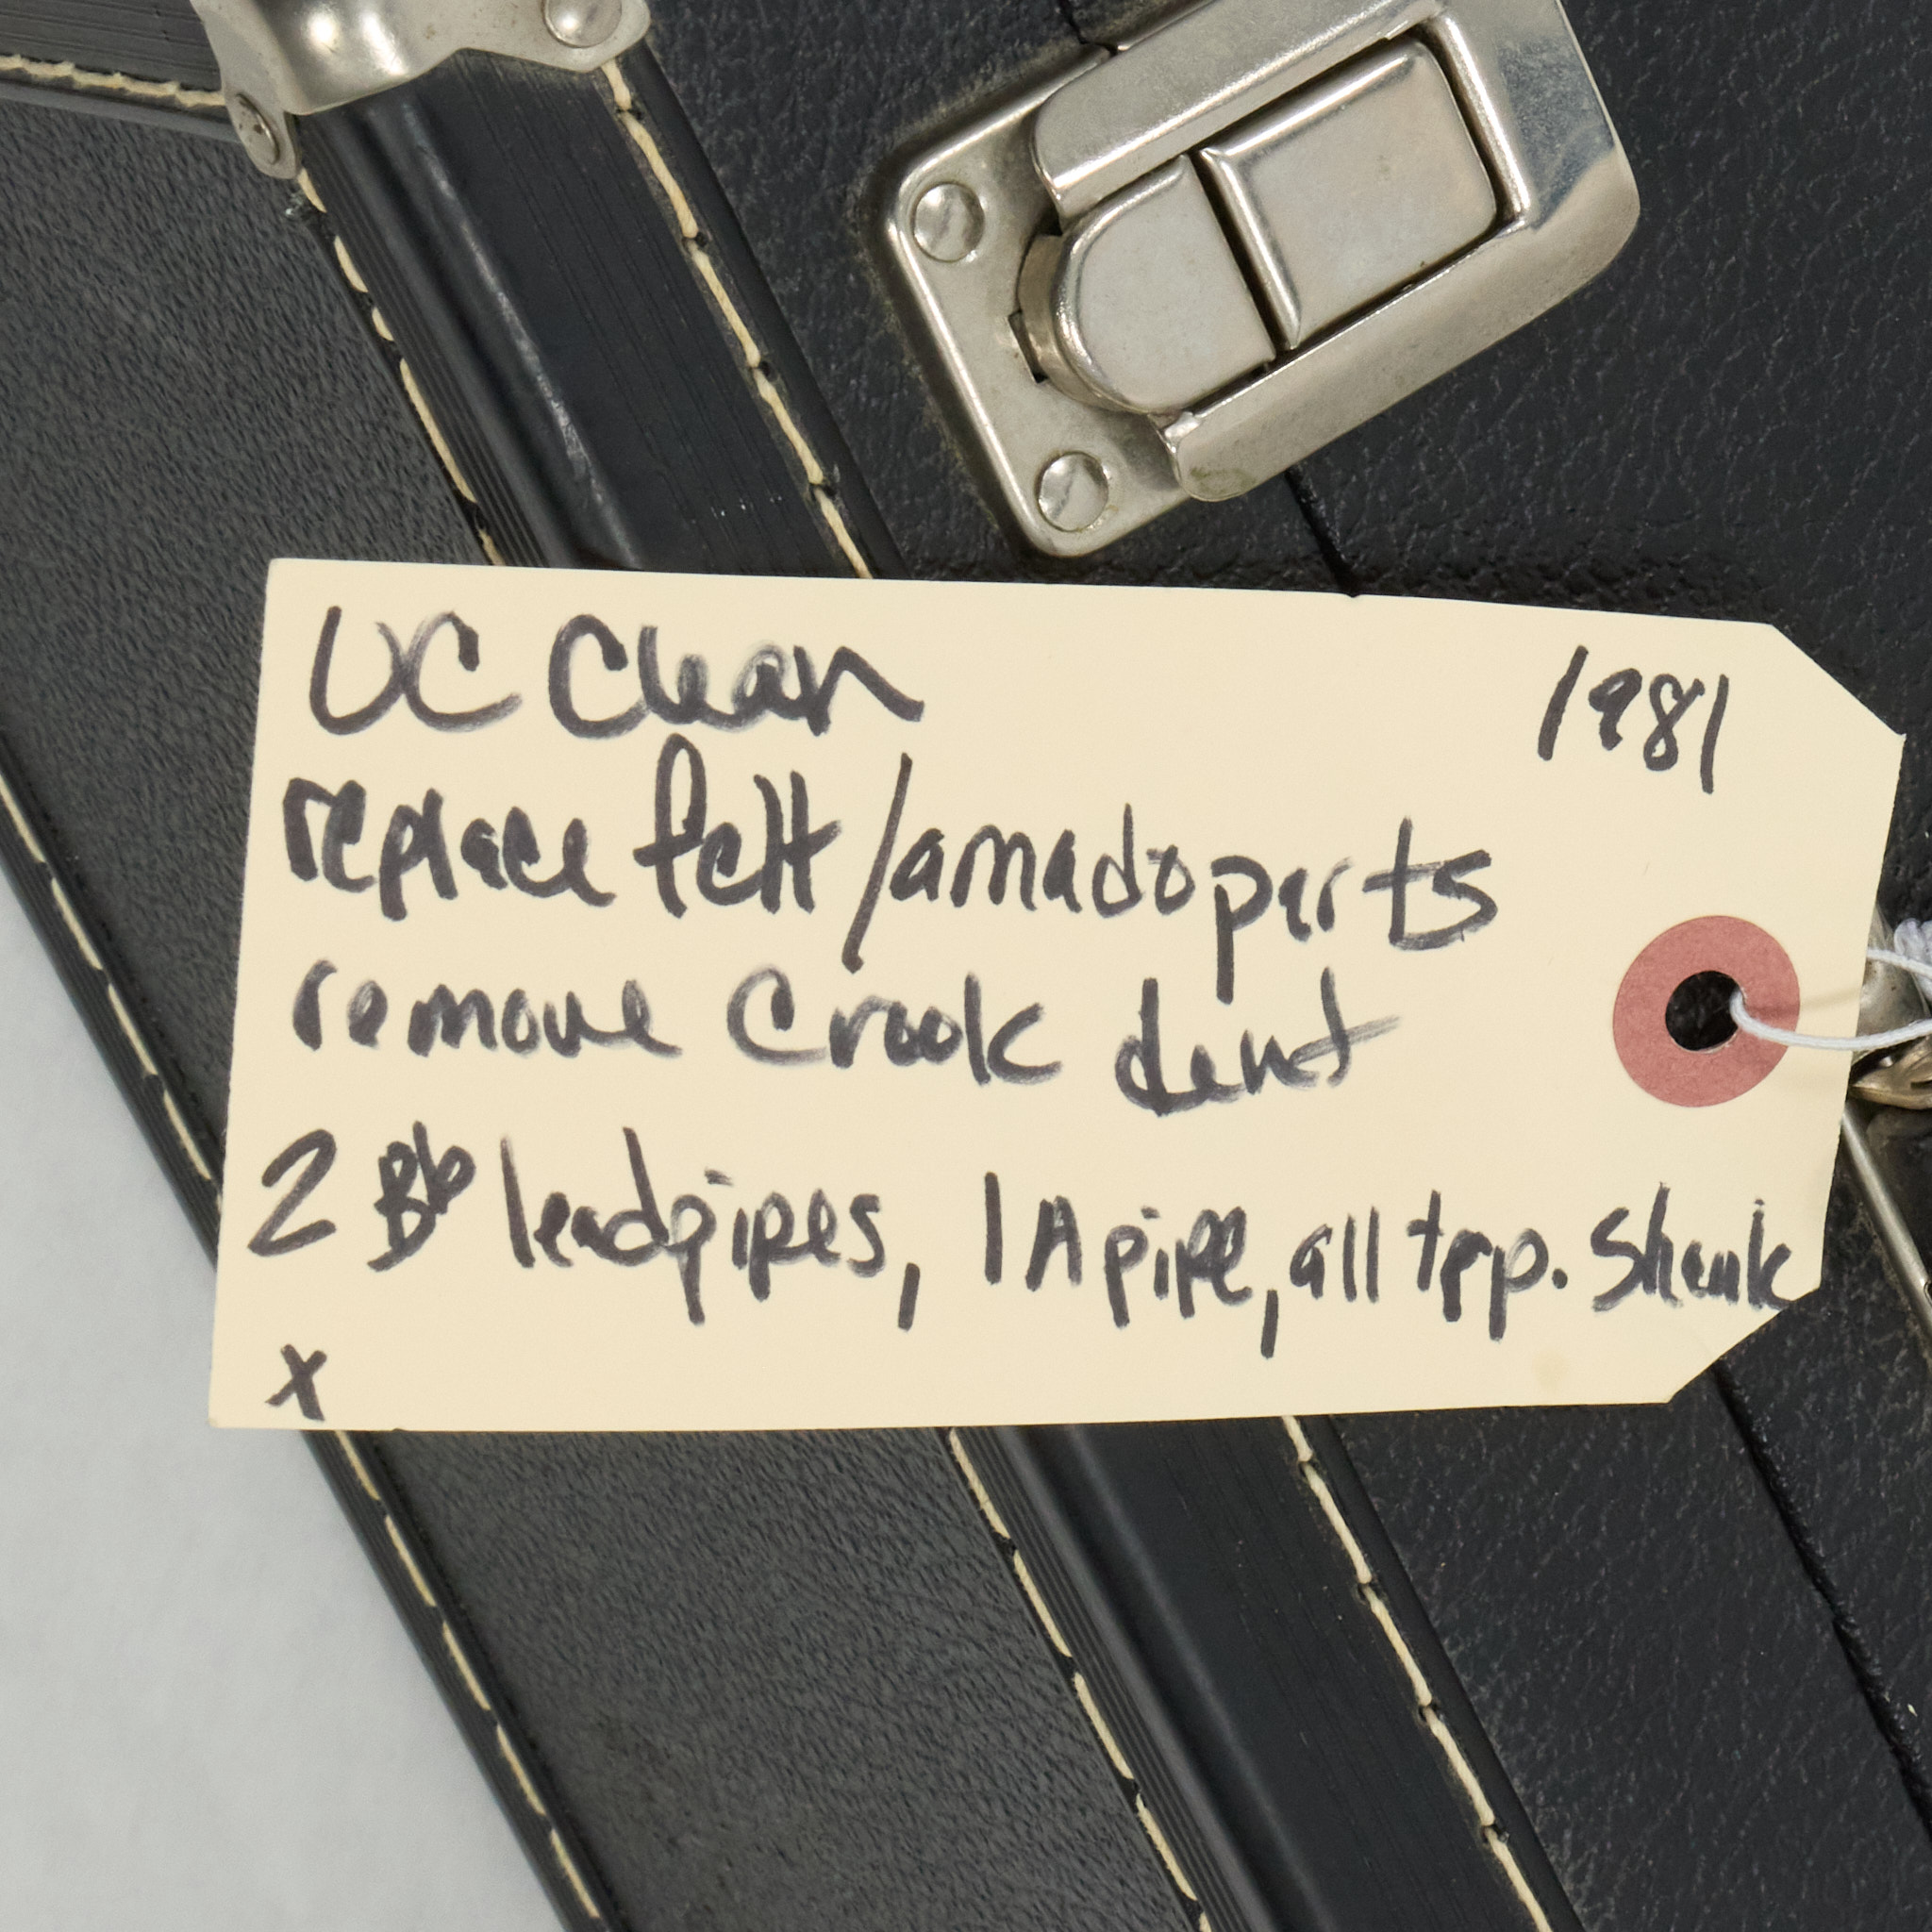 UC Clean
1981
replace felt/amado parts
remove Crook dent
2 Bb leadpipes, 1 A pipe, all trp. Shank
x